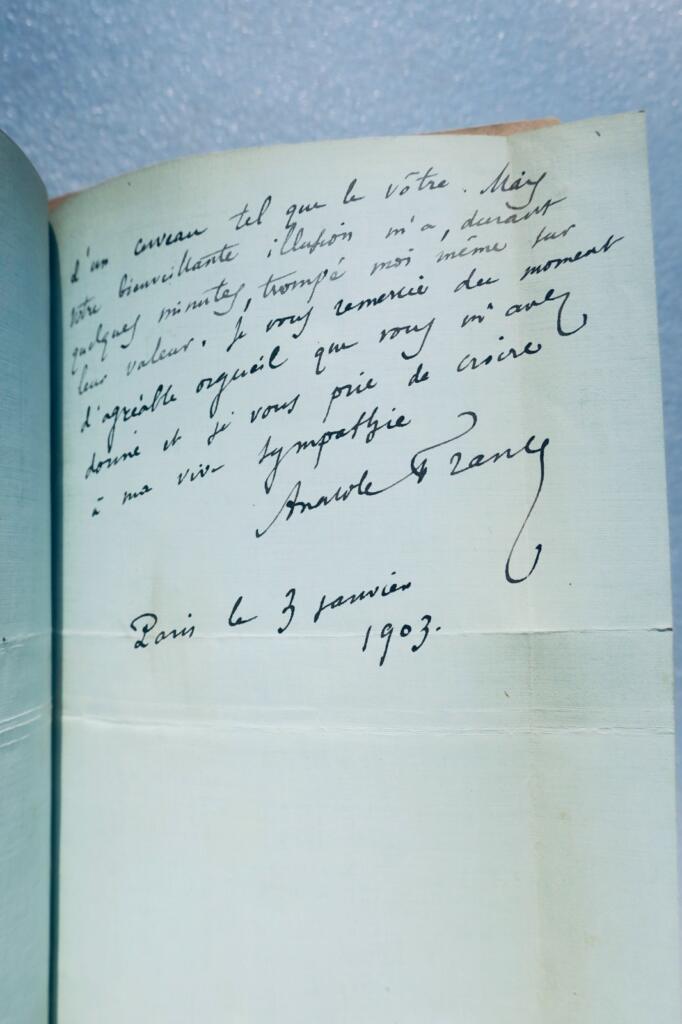 d'un cerveau tel que le vôtre. Mais
votre bienveillante illusion m'a, durant
quelques minutes, trompé moi même sur
leur valeur. Je vous remercie du moment
d'agréable orgueil que vous m'avez
donné et je vous prie de croire
à ma vive sympathie
Anatole France
Paris le 3 janvier
1903.